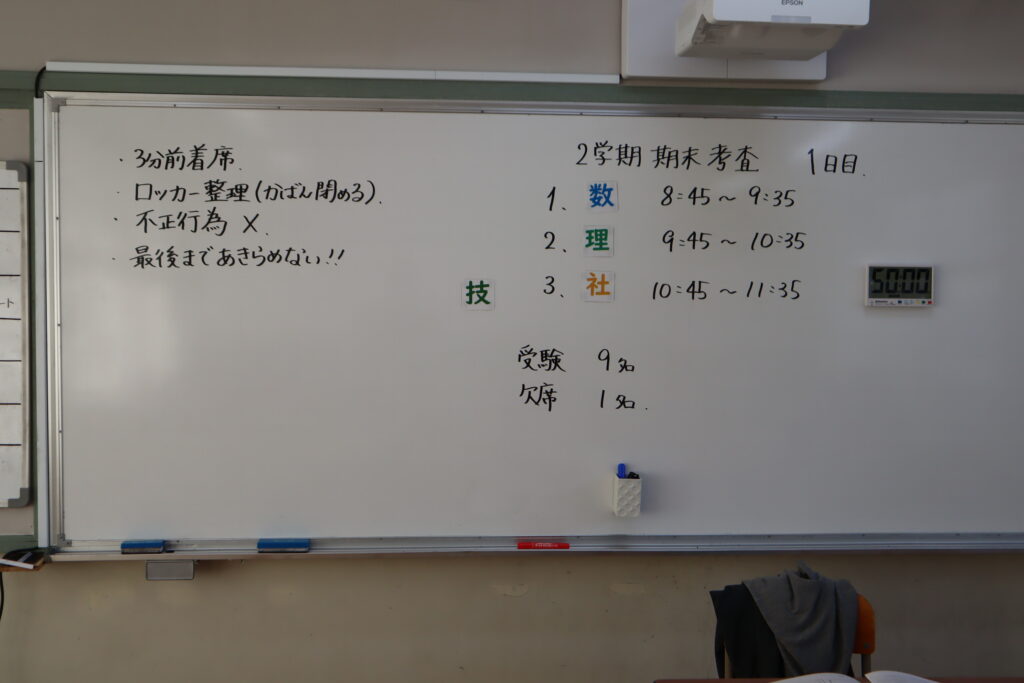 EPSON
・3分前着席.
・ロッカー整理(かばん閉める).
・不正行為 ×.
・最後まであきらめない!!
2学期 期末考査 1日目.
1、 数 8:45〜9:35
2、 理 9:45〜10:35
3、 社 10:45〜11:35
技
50:00
受験 9名
欠席 1名.
ート